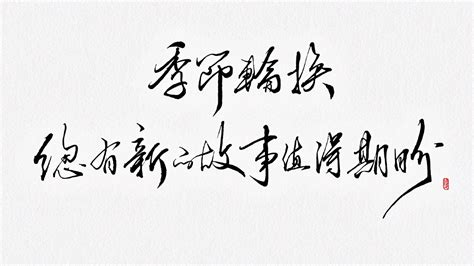 季節輪換
總有新的故事值得期盼